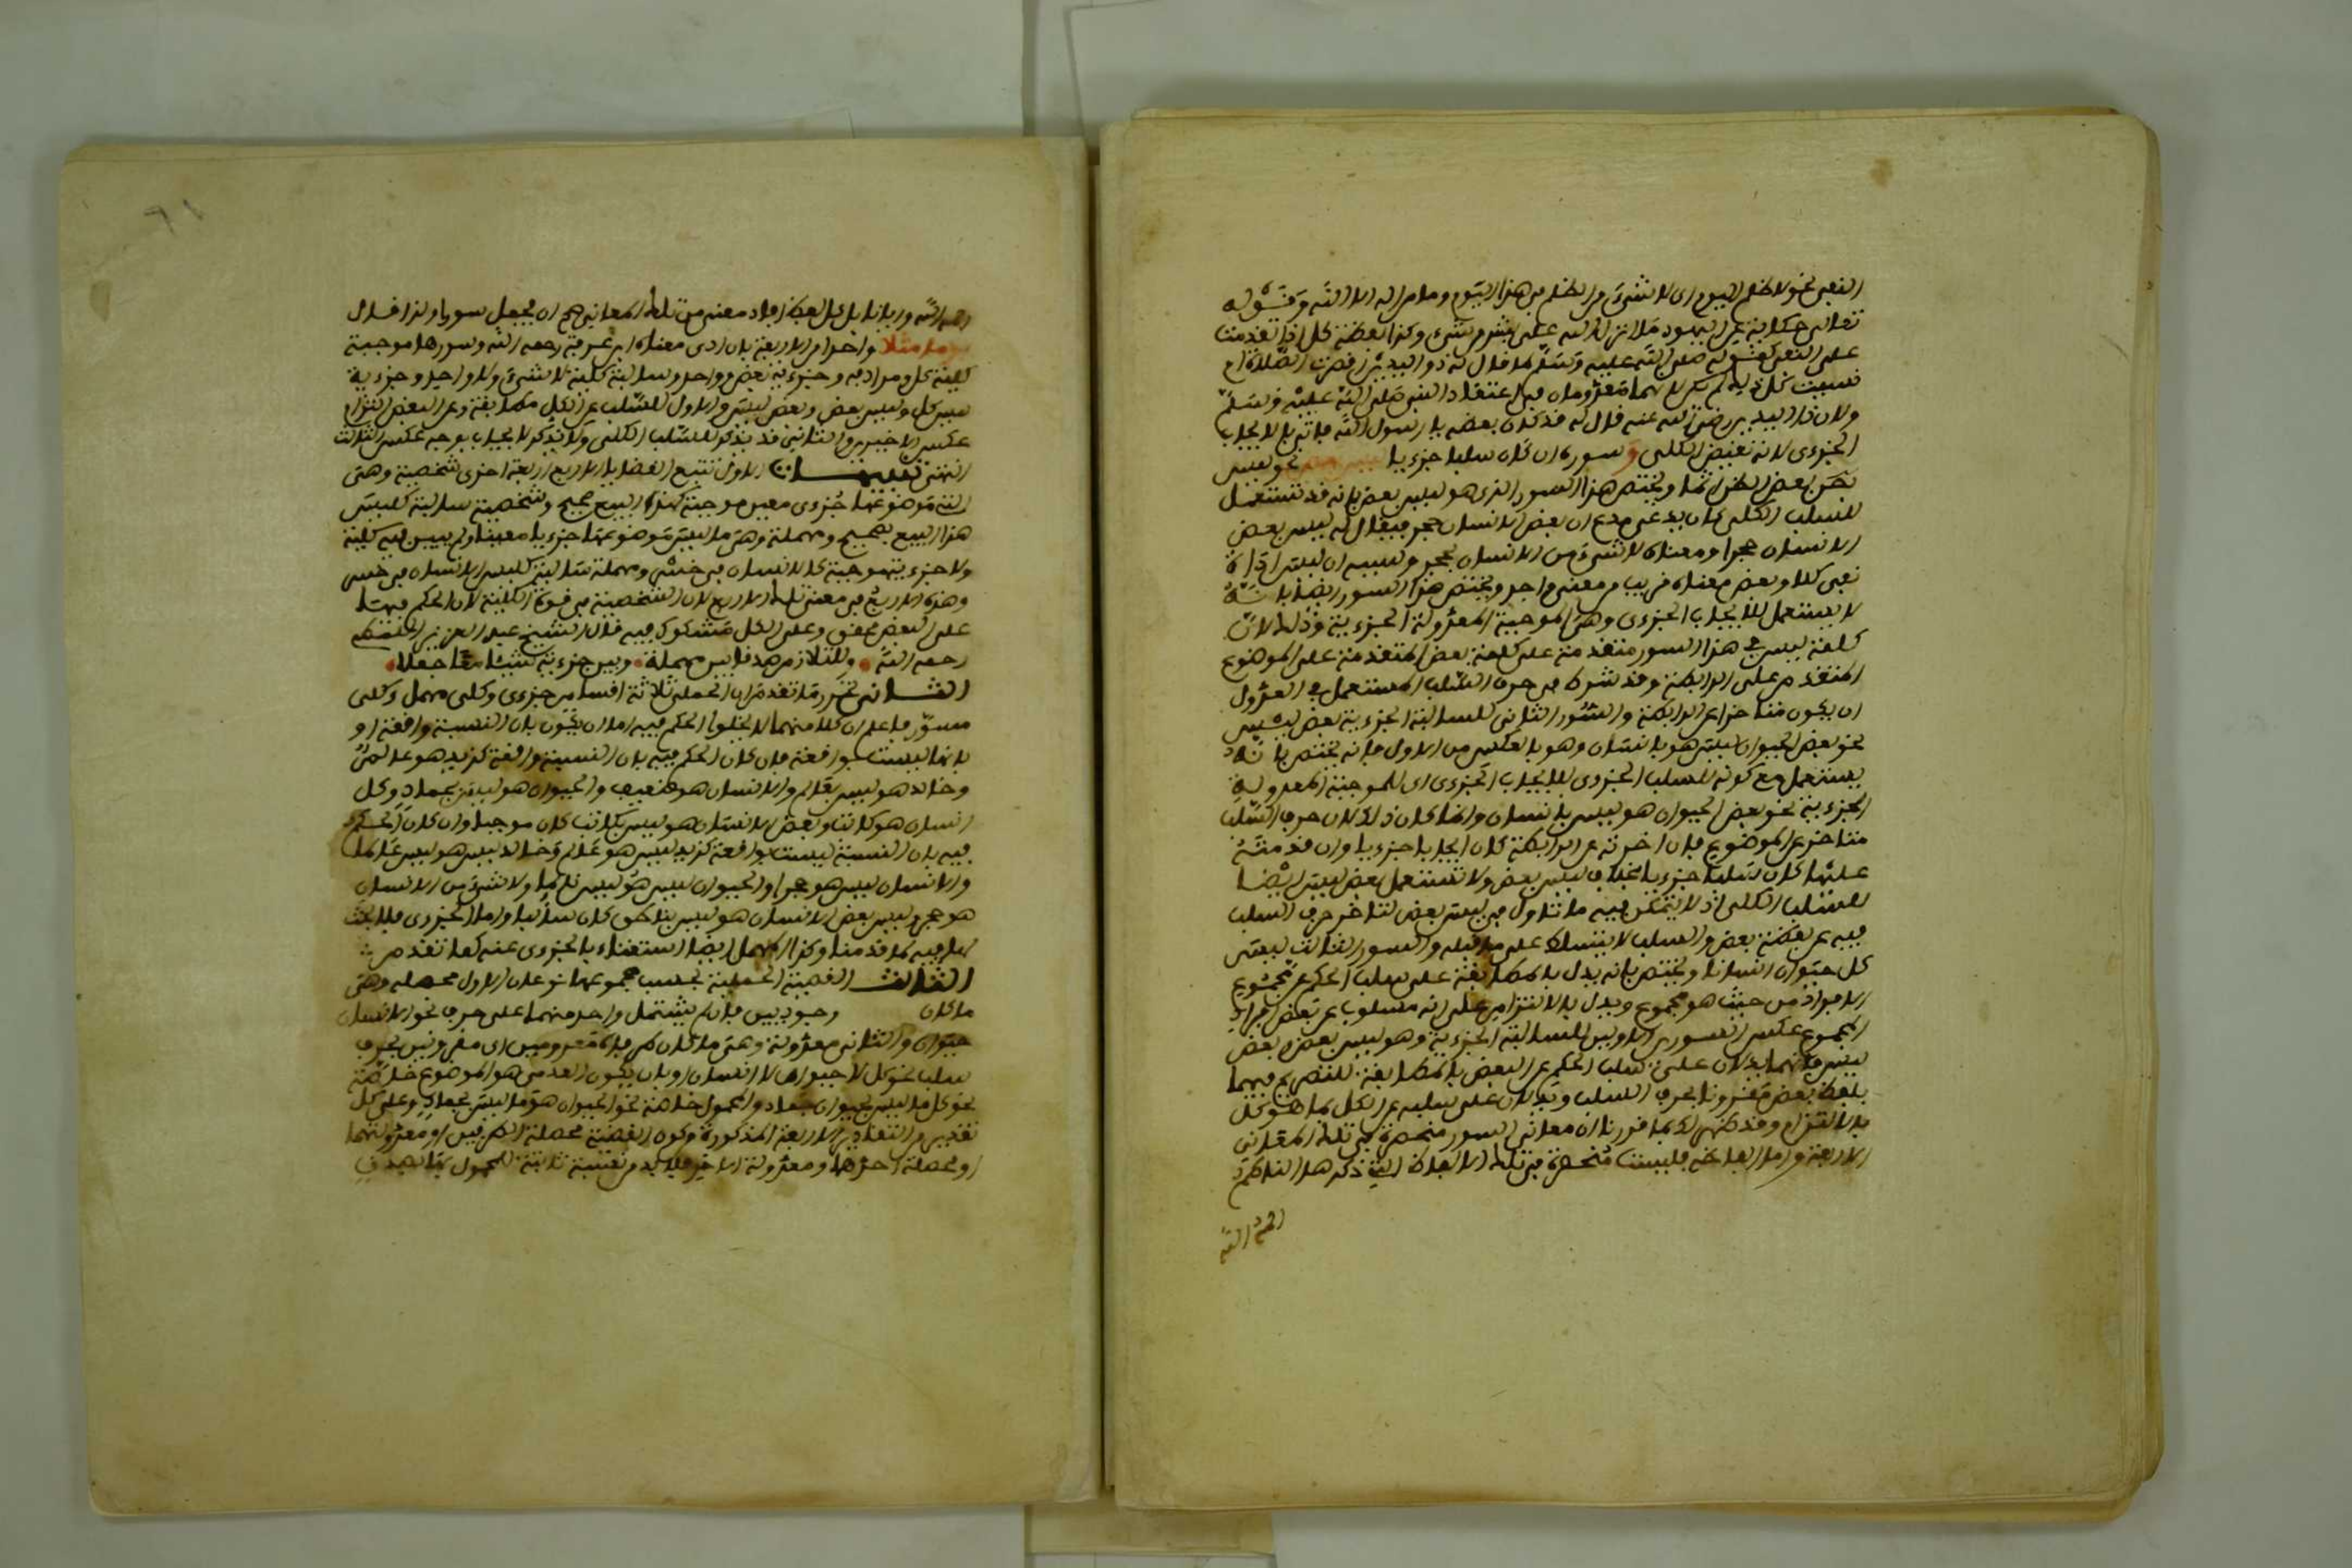 النفي نحو لا ظلم اليوم اي لا شيء من الظلم في هذا اليوم وما من اله الا الله وقوله
تعالى حكاية عن اليهود ما انزل الله على بشر من شيء وكذا لفظة كل اذا تقدمت
على النفي كقوله صلى الله عليه وسلم لما قال له ذو اليدين اقصرت الصلاة ام
نسيت كل ذلك لم يكن لانهما معدومان في اعتقاد النبي صلى الله عليه وسلم
ولان ذا اليدين رضي الله عنه قال له قد كان بعضه يا رسول الله فاتى بالايجاب
الجزءي لانه نقيض الكلي وسوره ان كان سلبا جزءيا ليس بعض نحو ليس
بعض ويختص هذا السور الذي هو ليس بعض بانه قد يستعمل
للسلب الكلي كان يدعي مدع ان بعض الانسان حجر فيقال له ليس بعض
الانسان حجرا ومعناه لا شيء من الانسان بحجر وسببه ان ليس اداة
نفي كلا وبعض معناه قريب من معنى واحد ويختص هذا السور ايضا بانه
لا يستعمل للايجاب الجزءي وهي الموجبة المعدولة الجزءية وذلك لان
كلمة ليس في هذا السور متقدمة على كلمة بعض المتقدمة على الموضوع
المتقدم على الرابطة وقد شرط في حرف السلب المستعمل في العدول
ان يكون متاخرا عن الرابطة والسور الثاني للسالبة الجزءية بعض ليس
نحو بعض الحيوان ليس هو بانسان وهو بالعكس من الاول فانه يختص بانه
يستعمل مع كونه للسلب الجزءي للايجاب الجزءي اي للموجبة المعدولة
الجزءية نحو بعض الحيوان هو ليس بانسان وانما كان ذلك لان حرف السلب
متاخر عن الموضوع فان اخرته عن الرابطة كان ايجابا جزءيا وان قدمته
عليها كان سلبا جزءيا بخلاف ليس بعض ولا يستعمل بعض ليس ايضا
للسلب الكلي اذ لا يتمكن فيه ما تاول في ليس بعض لتاخر حرف السلب
فيه عن لفظة بعض والسلب لا يتسلط على ما قبله والسور الثالث ليس
كل حيوان انسانا ويختص بانه يدل بالمطابقة على سلب الحكم عن مجموع
الافراد من حيث هو مجموع ويدل بالالتزام على انه مسلوب عن بعض افراد
المجموع عكس السورين الاولين للسالبة الجزءية وهو ليس بعض وبعض
ليس فانهما يدلان على سلب الحكم عن البعض بالمطابقة للتصريح فيهما
بلفظ بعض مقرونا بحرف السلب ويدلان على سلبه عن الكل بما هو كل
بالالتزام وقد ظهر لك بما قررنا ان معاني السور منحصرة في تلك المعاني
الاربعة واما الفاظه فليست منحصرة في تلك الالفاظ التي ذكرها الناظم
رحمه الله
رحمه الله وايانا بل كل لفظ افاد معنى من تلك المعاني صح ان يجعل سورا ولذا قال
مثلا واحد من الاربعة بان ادى معناه ابن عرفة رحمه الله وسورها موجبة
كلية كل ومرادفه وجزءية بعض وواحد وسالبة كلية لا شيء ولا واحد وجزءية
ليس كل وليس بعض وبعض ليس والاول للسلب عن الكل مطابقة وعن البعض التزام
عكس الاخيرين والثاني قد يذكر للسلب الكلي ولا يذكر للايجاب بوجه عكس الثالث
انتهى تنبيهات الاول تتبع القضايا الاربع اربعة اخرى شخصية وهي
التي موضوعها جزءي معين موجبة كهذا البيع صحيح وشخصية سالبة كليس
هذا البيع بصحيح ومهملة وهي ما ليس موضوعها جزءيا معينا ولم يبين فيه كلية
ولا جزءية موجبة كالانسان في خسر ومهملة سالبة كليس الانسان في خسر
وهذه الاربع في معنى تلك الاربع لان الشخصية في قوة الكلية لان الحكم فيها
على البعض محقق وعلى الكل مشكوك فيه قال الشيخ عبد العزيز
رحمه الله وللتلازم صدقا بين مهملة وبين جزءية شيئا معا جعلا
الثاني تحرر مما تقدم ان الحملي ثلاثة اقسام جزءي وكلي مهمل وكلي
مسور فاعلم ان كلا منهما لا يخلوا الحكم فيه اما ان يكون بان النسبة واقعة او
بانها ليست بواقعة فان كان الحكم فيه بان النسبة واقعة كزيد هو عالم
وخالد هو ليس بقائم والانسان هو ضعيف والحيوان هو ليس بجماد وكل
انسان هو كاتب وبعض الانسان هو ليس بكاتب كان موجبا وان كان الحكم
فيه بان النسبة ليست بواقعة كزيد ليس هو عالم وخالد ليس هو ليس عالما
والانسان ليس هو حجرا والحيوان ليس هو ليس ناميا ولا شيء من الانسان
هو حجر وليس بعض الانسان هو ليس بناطق كان سالبا واما الجزءي فلا بحث
لنا فيه كما قدمنا وكذا المهمل ايضا استغناء بالجزءي عنه كما تقدم
الثالث القضية الحملية بحسب مجموعها نوعان الاول محصلة وهي
ما كان وجوديين فان لم يشتمل واحد منهما على حرف نحو الانسان
حيوان والثاني معدولة وهي ما كان طرفاه عدميين اي مقرونين بحرف
سلب نحو كل لا حيوان لا انسان او بان يكون العدمي هو الموضوع خاصة
نحو كل ما ليس بحيوان جماد والمحمول خاصة نحو الحيوان هو ما ليس بجماد وعلى كل
تقدير من التقادير الاربعة المذكورة وكون القضية محصلة الطرفين او معدولتهما
او محصلة احدهما ومعدولة الاخر فلا بد من نسبة ثابتة للمحمول بها يصدق